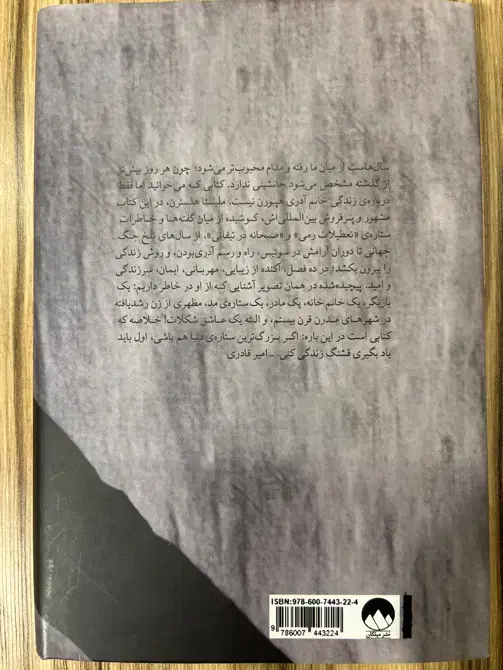 سال‌هاست از میان ما رفته و مدام محبوب‌تر می‌شود؛ چون هر روز بیش‌تر
از گذشته مشخص می‌شود جانشینی ندارد. کتابی که می‌خوانید اما فقط
درباره‌ی زندگی خانم آدری هپبورن نیست. ملیسا هلسترن، در این کتاب
مشهور و پرفروش بین‌المللی‌اش، کوشیده از میان گفته‌ها و خاطرات
ستاره‌ی «تعطیلات رمی» و «صبحانه در تیفانی»، از سال‌های تلخ جنگ
جهانی تا دوران آرامش در سوئیس، راه و رسم آدری‌بودن، و روش زندگی
را بیرون بکشد؛ در ده فصل، آکنده از زیبایی، مهربانی، ایمان، سرزندگی
و امید. پیچیده‌شده در همان تصویر آشنایی که از او در خاطر داریم: یک
بازیگر، یک خانم خانه، یک مادر، یک ستاره‌ی مد، مظهری از زن رشدیافته
در شهرهای مدرن قرن بیستم، و البته یک عاشق شکلات! خلاصه که
کتابی است در این باره: اگر بزرگ‌ترین ستاره‌ی دنیا هم باشی، اول باید
یاد بگیری قشنگ زندگی کنی. ــ امیر قادری
ISBN:978-600-7443-22-4
9 786007 443224
نشر میلکان